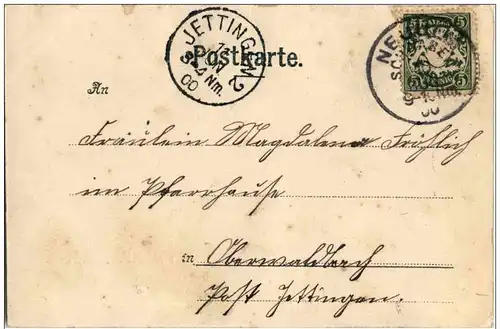 JETTINGEN 2
Postkarte.
An
Fräulein Magdalena Fröhlich
im Pfarrhause
in Oberwaldbach
Post Jettingen.